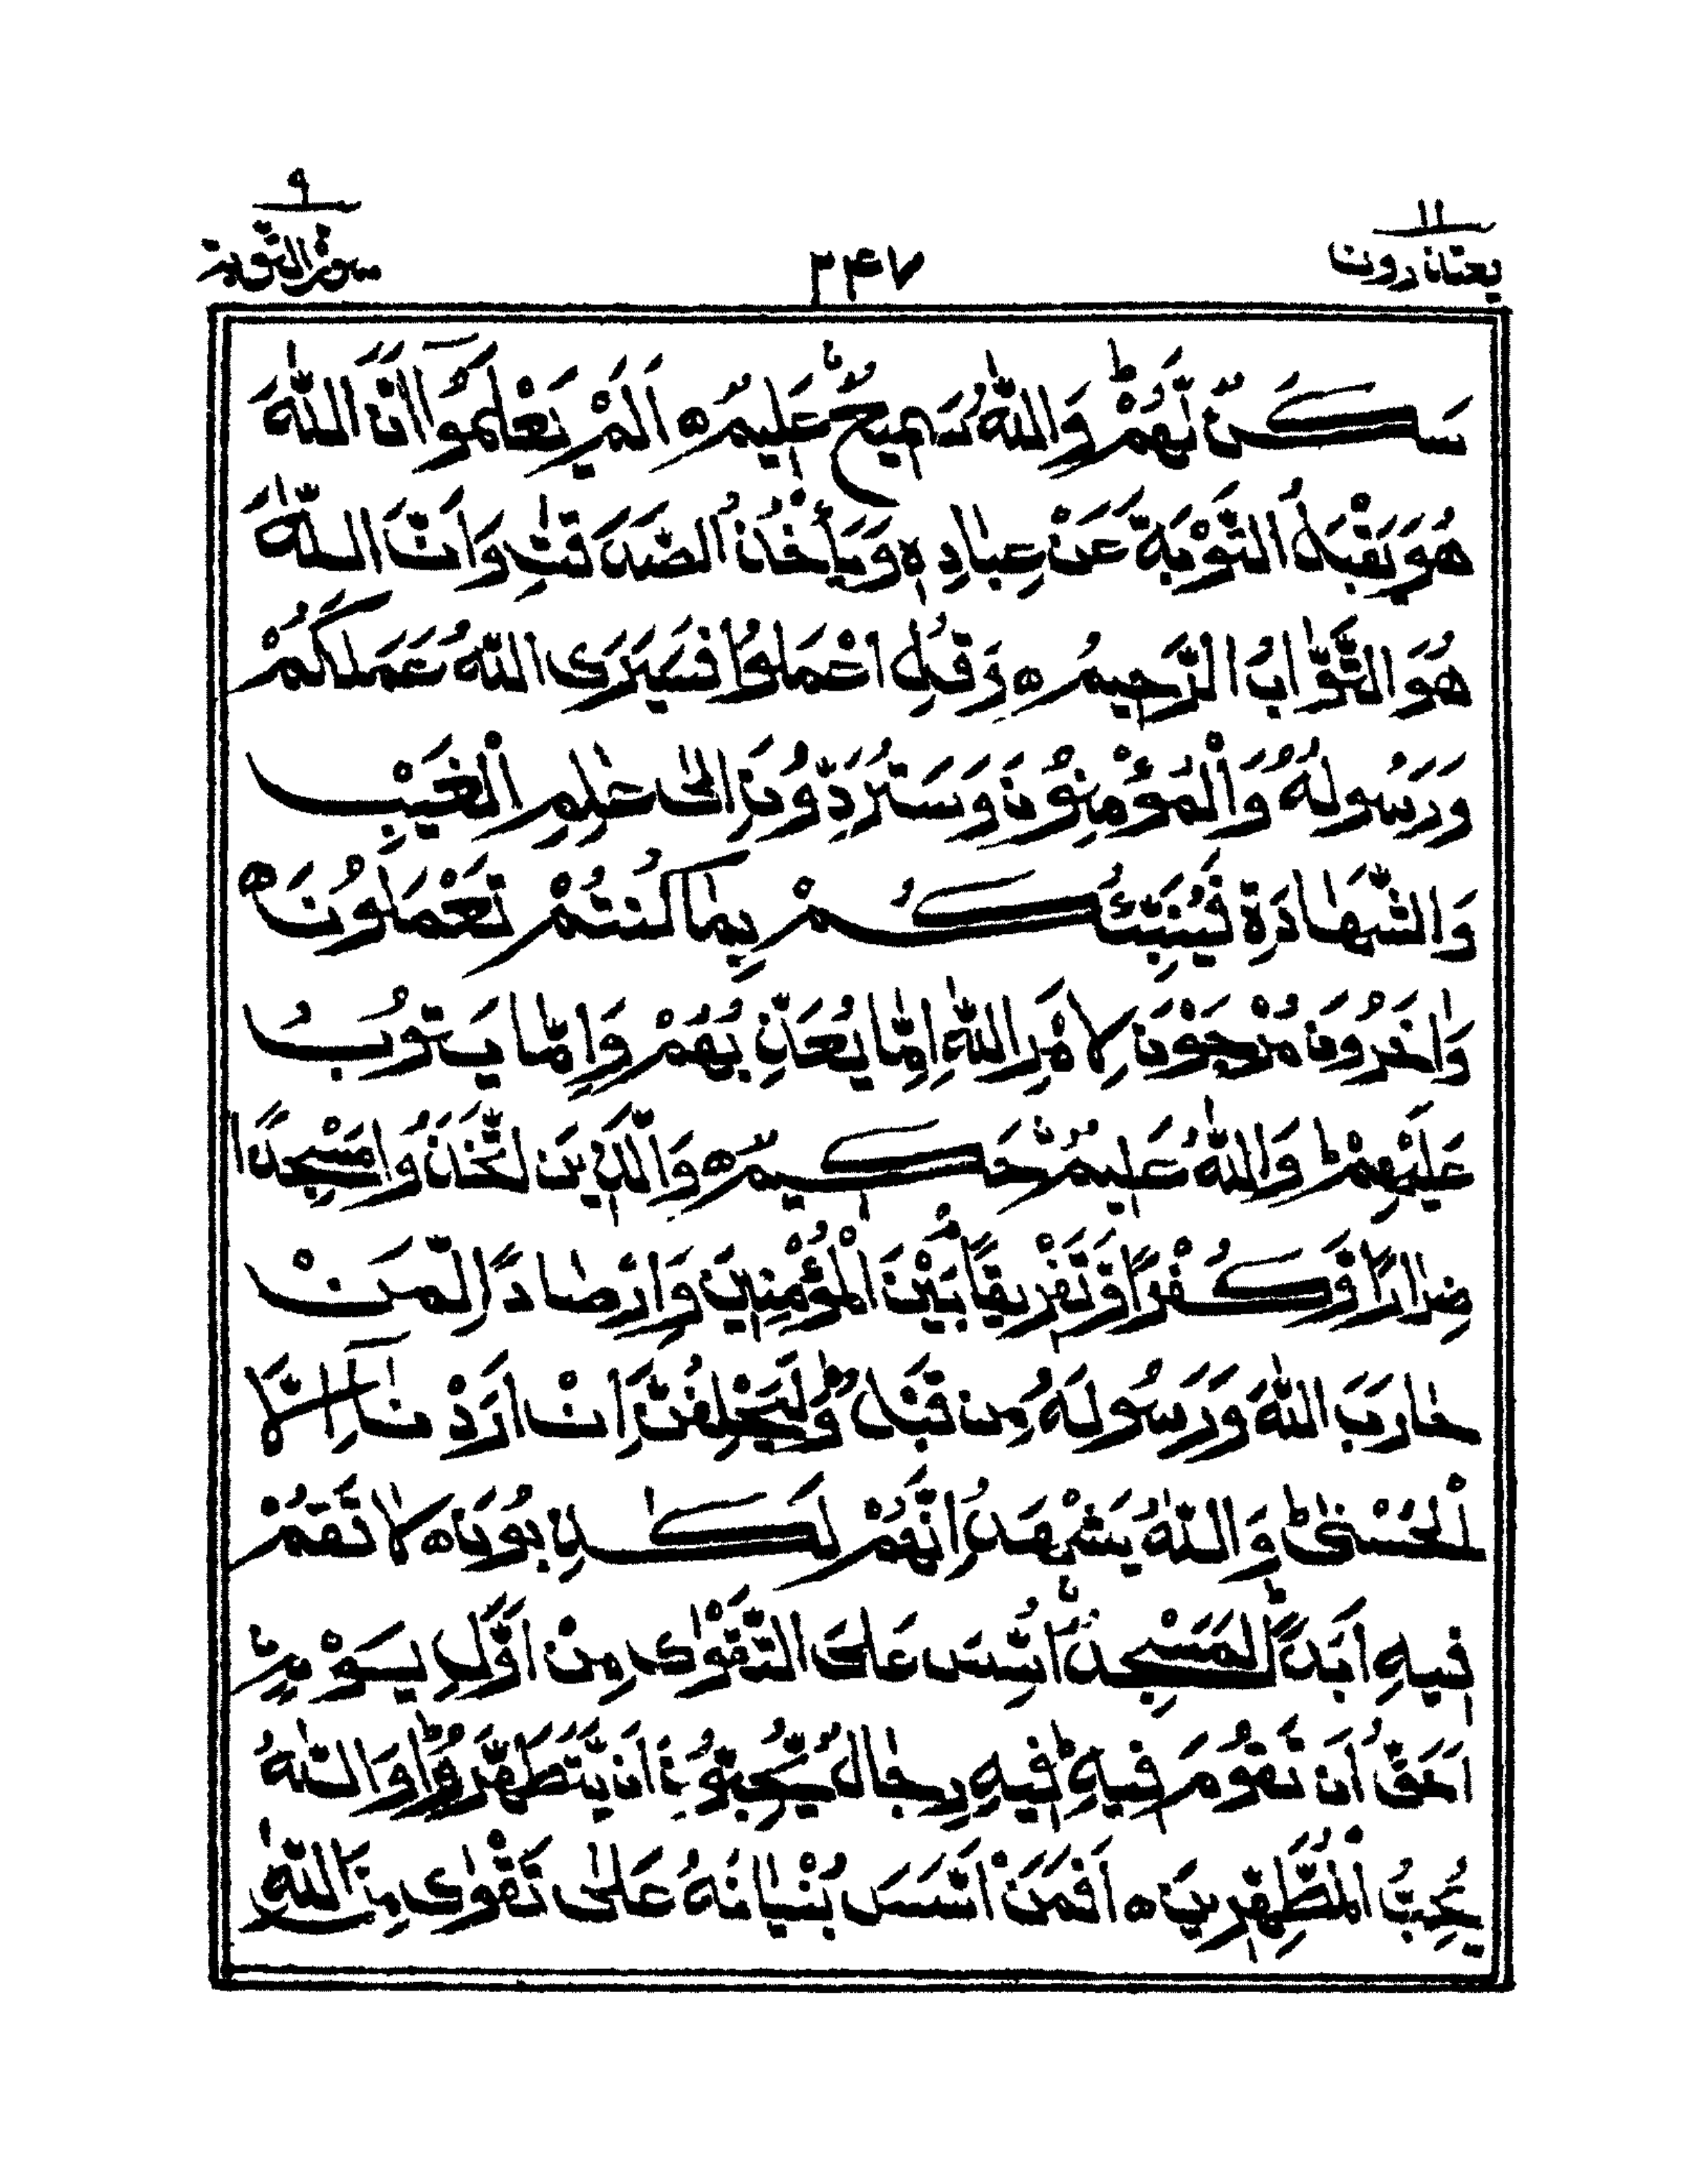 ۱۱
یعتذرون
۲۴۷
۹
سورة التوبة
سَكَنٌ لَّهُمْ ؕ وَاللّٰهُ سَمِيْعٌ عَلِيْمٌ ہ اَلَمْ يَعْلَمُوْۤا اَنَّ اللّٰهَ
هُوَ يَقْبَلُ التَّوْبَةَ عَنْ عِبَادِهٖ وَيَاْخُذُ الصَّدَقٰتِ وَاَنَّ اللّٰهَ
هُوَ التَّوَّابُ الرَّحِيْمُ ہ وَقُلِ اعْمَلُوْا فَسَيَرَى اللّٰهُ عَمَلَكُمْ
وَرَسُوْلُهٗ وَالْمُؤْمِنُوْنَ وَسَتُرَدُّوْنَ اِلٰى عٰلِمِ الْغَيْبِ
وَالشَّهَادَةِ فَيُنَبِّئُكُمْ بِمَا كُنْتُمْ تَعْمَلُوْنَ ہ
وَاٰخَرُوْنَ مُرْجَوْنَ لِاَمْرِ اللّٰهِ اِمَّا يُعَذِّبُهُمْ وَاِمَّا يَتُوْبُ
عَلَيْهِمْ ؕ وَاللّٰهُ عَلِيْمٌ حَكِيْمٌ ہ وَالَّذِيْنَ اتَّخَذُوْا مَسْجِدًا
ضِرَارًا وَّكُفْرًا وَّتَفْرِيْقًۢا بَيْنَ الْمُؤْمِنِيْنَ وَاِرْصَادًا لِّمَنْ
حَارَبَ اللّٰهَ وَرَسُوْلَهٗ مِنْ قَبْلُ ؕ وَلَيَحْلِفُنَّ اِنْ اَرَدْنَاۤ اِلَّا
الْحُسْنٰى ؕ وَاللّٰهُ يَشْهَدُ اِنَّهُمْ لَكٰذِبُوْنَ ہ لَا تَقُمْ
فِيْهِ اَبَدًا ؕ لَمَسْجِدٌ اُسِّسَ عَلَى التَّقْوٰى مِنْ اَوَّلِ يَوْمٍ
اَحَقُّ اَنْ تَقُوْمَ فِيْهِ ؕ فِيْهِ رِجَالٌ يُّحِبُّوْنَ اَنْ يَّتَطَهَّرُوْا ؕ وَاللّٰهُ
يُحِبُّ الْمُطَّهِّرِيْنَ ہ اَفَمَنْ اَسَّسَ بُنْيَانَهٗ عَلٰى تَقْوٰى مِنَ اللّٰهِ